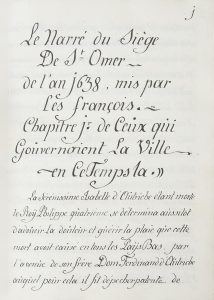 j
Le Narré du Siège
De St. Omer
de l'an 1638, mis par
les françois.
Chapitre j: de Ceux qui
Gouvernoient La Ville
en Ce Temps la.
La Serenissime Isabelle d'Austriche étant morte
le Roy Philippe quatrieme, se determina aussitot
d'adoucir la douleur et guerir la plaie que cette
mort avoit cause en tous les Païs Bas, par
l'avenue de son frere Dom Ferdinand d'Autriche
auquel pour cela il fit depecher patente de